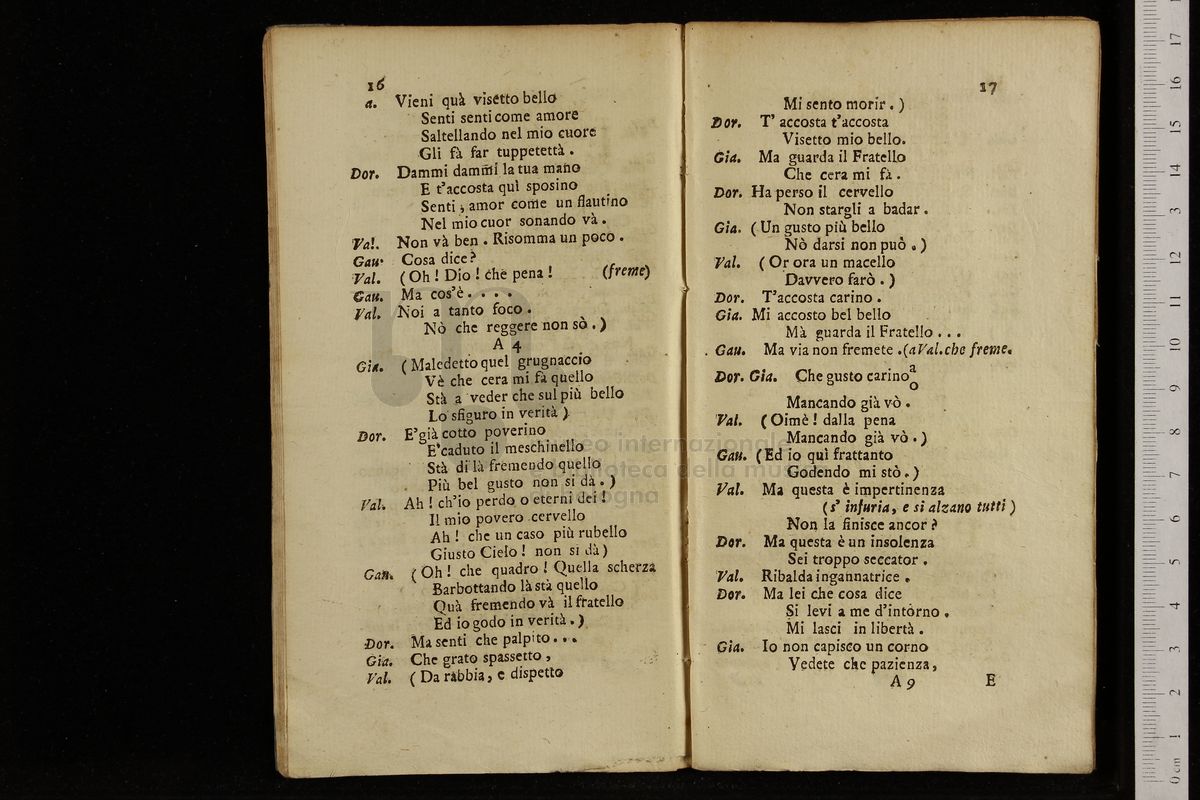 16
a. Vieni quà visetto bello
Senti senti come amore
Saltellando nel mio cuore
Gli fà far tuppetettà .
Dor. Dammi dammi la tua mano
E t'accosta quì sposino
Senti , amor come un flautino
Nel mio cuor sonando và .
Val. Non và ben . Risomma un poco .
Gau. Cosa dice ?
Val. ( Oh ! Dio ! che pena ! (freme)
Gau. Ma cos'è . . . .
Val. Noi a tanto foco .
Nò che reggere non sò . )
A 4
Gia. ( Maledetto quel grugnaccio
Vè che cera mi fà quello
Stà a veder che sul più bello
Lo sfiguro in verità )
Dor. E'già cotto poverino
E'caduto il meschinello
Stà di là fremendo quello
Più bel gusto non si dà . )
Val. Ah ! ch'io perdo o eterni dei !
Il mio povero cervello
Ah ! che un caso più rubello
Giusto Cielo ! non si dà )
Gau. ( Oh ! che quadro ! Quella scherza
Barbottando là stà quello
Quà fremendo và il fratello
Ed io godo in verità . )
Dor. Ma senti che palpito . . .
Gia. Che grato spassetto ,
Val. ( Da rabbia , e dispetto
17
Mi sento morir . )
Dor. T' accosta t'accosta
Visetto mio bello.
Gia. Ma guarda il Fratello
Che cera mi fà .
Dor. Ha perso il cervello
Non stargli a badar .
Gia. ( Un gusto più bello
Nò darsi non può . )
Val. ( Or ora un macello
Davvero farò . )
Dor. T'accosta carino .
Gia. Mi accosto bel bello
Mà guarda il Fratello . . .
Gau. Ma via non fremete .(a Val. che freme.
Dor. Gia. Che gusto carino a o
Mancando già vò .
Val. ( Oimè ! dalla pena
Mancando già vò . )
Gau. ( Ed io quì frattanto
Godendo mi stò . )
Val. Ma questa è impertinenza
( s' infuria, e si alzano tutti )
Non la finisce ancor ?
Dor. Ma questa è un insolenza
Sei troppo seccator .
Val. Ribalda ingannatrice .
Dor. Ma lei che cosa dice
Si levi a me d'intòrno .
Mi lasci in libertà .
Gia. Io non capisco un corno
Vedete che pazienza,
A 9 E
museo internazionale
e biblioteca della musica
di bologna
0 cm 1 2 3 4 5 6 7 8 9 10 11 12 13 14 15 16 17